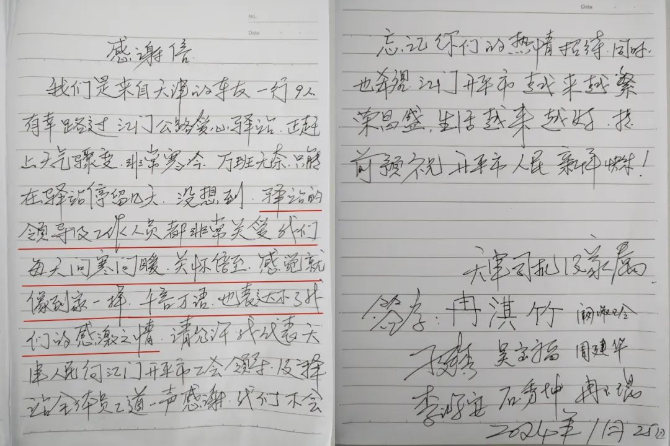 感谢信
我们是来自天津的车友一行9人
有幸路过江门公路爱心驿站,正赶
上天气骤变,非常寒冷,万班无奈,只能
在驿站停留几天,没想到,驿站的
领导及工作人员都非常关爱我们
每天问寒问暖,关怀倍至,感觉就
像到家一样,千言万语,也表达不了我
们的感激之情,请允许我代表天
津人民向江门开平市工会领导及驿
站全体员工道一声感谢,我们不会
忘记你们的热情招待,同时
也希望江门开平市越来越繁
荣昌盛,生活越来越好,提
前预祝开平市人民新年快乐!
天津司机及家属
签字:冉淇竹
吴宝福 周建华
李 石秀坤 冉
2024年1月25日